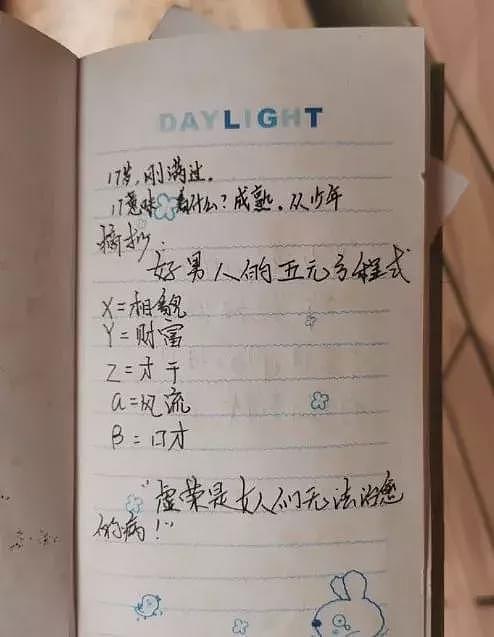 DAYLIGHT
17岁,刚满过。
17意味着什么?成熟。从少年
摘抄:
好男人们的五元方程式
X=相貌
Y=财富
Z=才干
a=风流
B=口才
"虚荣是女人们无法治愈
的病!"